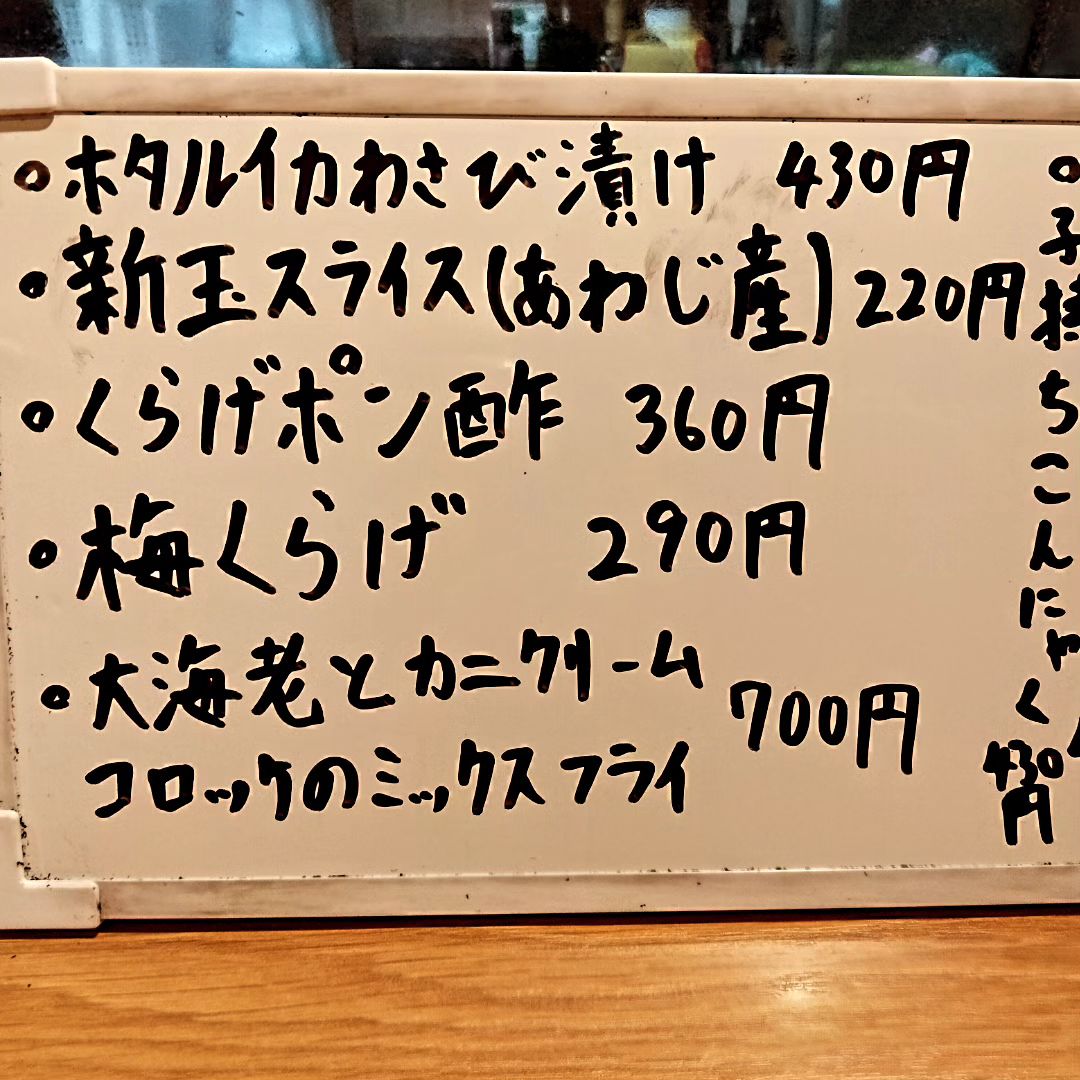 ・ホタルイカわさび漬け 430円
・新玉スライス(あわじ産) 220円
・くらげポン酢 360円
・梅くらげ 290円
・大海老とカニクリーム
コロッケのミックスフライ 700円
・子持
ちこんにゃく
430円